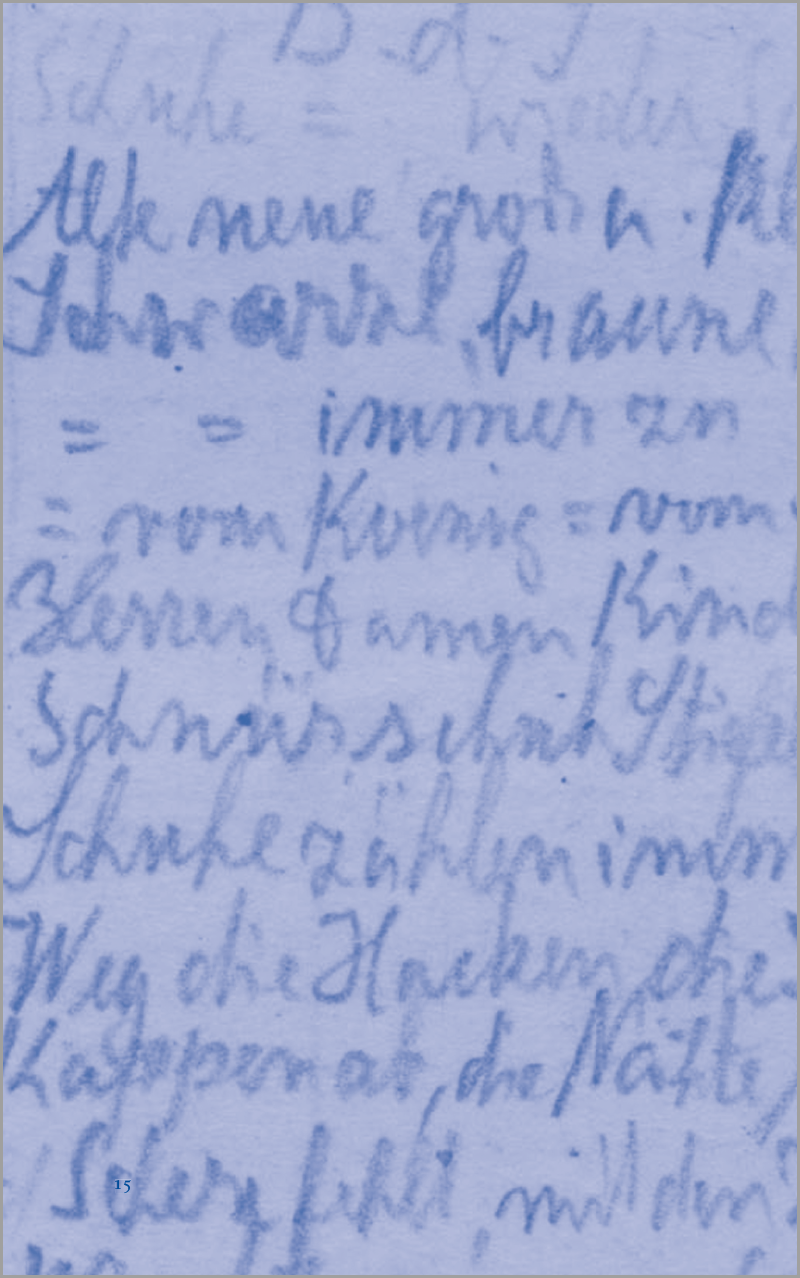 B.d.J
Schuhe = wieder
Alte neue große u. kl
Schwarze, braune
= = immer zu
= vom Koenig = vom
Herren Damen Kind
Schnürschuh Stiefel
Schuhe zählen imm
Weg die Hacken die
Kappen ab, die Nähte,
Schere fehlt, mit den
15